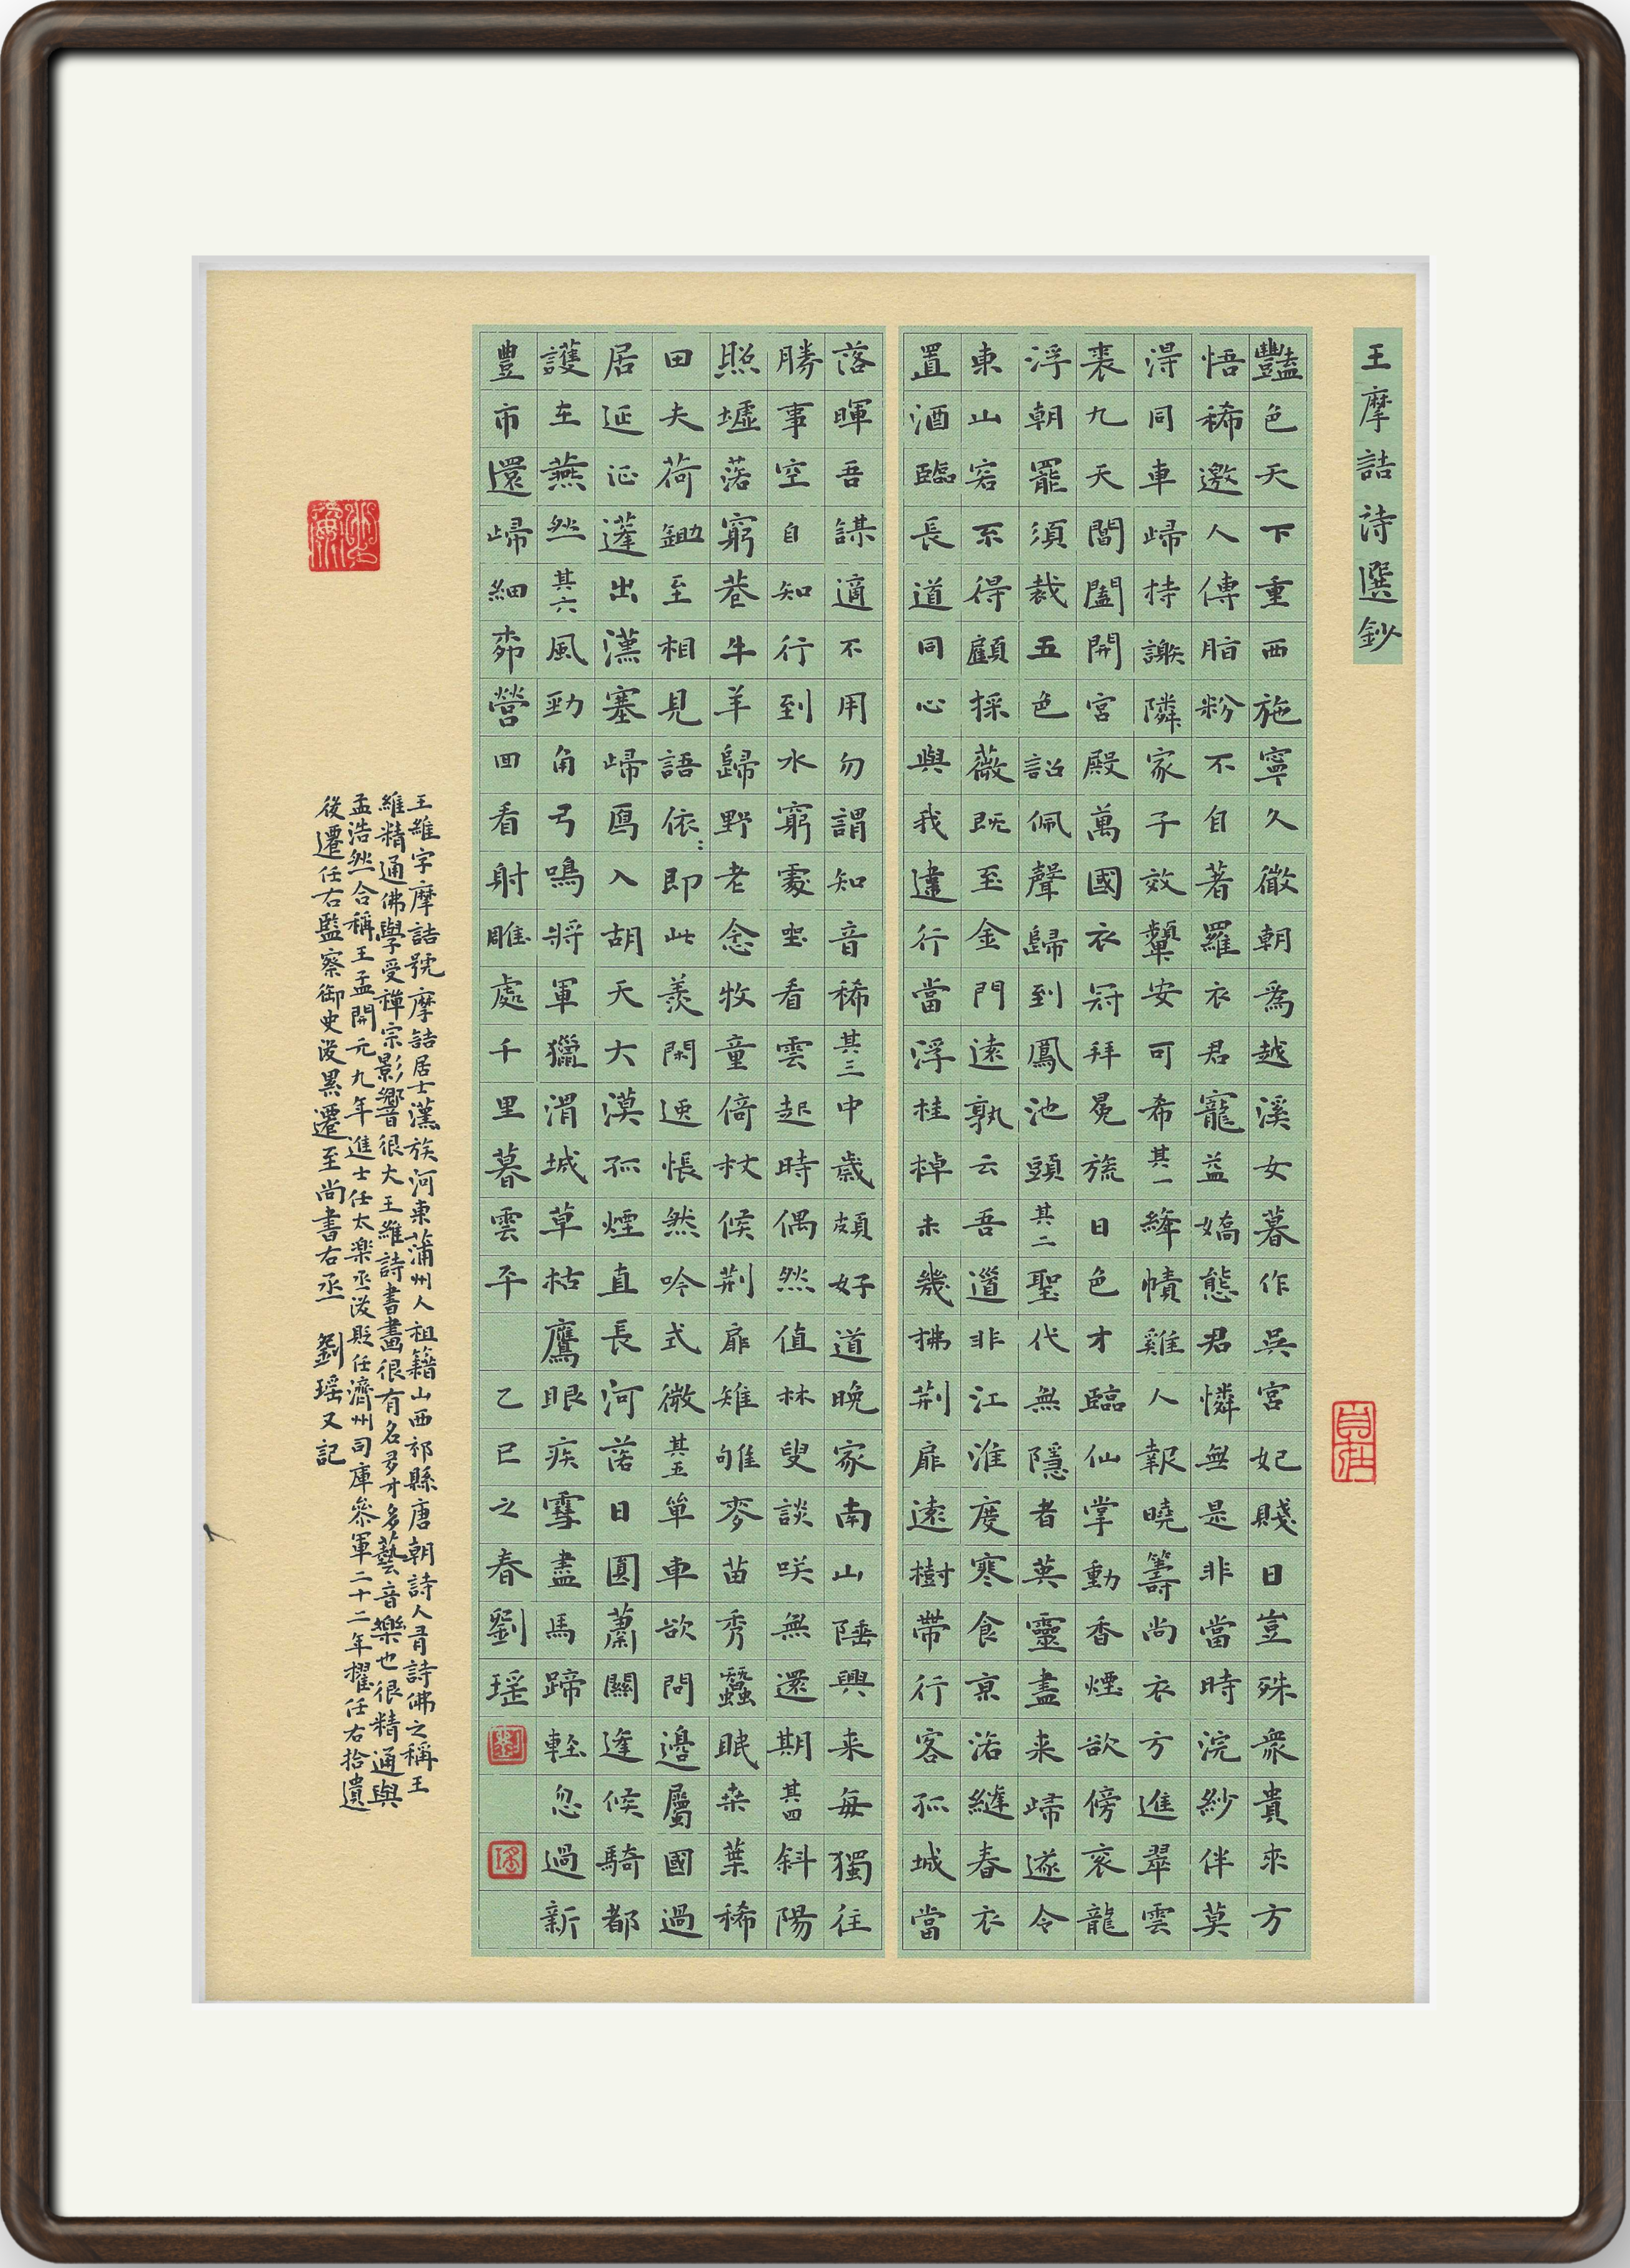 王摩詰詩選鈔
豔色天下重西施寧久微朝為越溪女暮作吳宮妃賤日豈殊衆貴來方
悟稀邀人傳脂粉不自著羅衣君寵益嬌態君憐無是非當時浣紗伴莫
得同車歸持謝隣家子效顰安可希其一絳幘雞人報曉籌尚衣方進翠雲
裘九天閶闔開宮殿萬國衣冠拜冕旒日色才臨仙掌動香煙欲傍衮龍
浮朝罷須裁五色詔佩聲歸到鳳池頭其二聖代無隱者英靈盡来歸遂令
東山客不得顧採薇既至金門遠孰云吾道非江淮度寒食京洛縫春衣
置酒臨長道同心與我違行當浮桂棹未幾拂荆扉遠樹帶行客孤城當
落暉吾謀適不用勿謂知音稀其三中歲頗好道晚家南山陲興来每獨往
勝事空自知行到水窮處坐看雲起時偶然值林叟談笑無還期其四斜陽
照墟落窮巷牛羊歸野老念牧童倚杖候荆扉雉雊麥苗秀蠶眠桑葉稀
田夫荷鋤至相見語依：即此羨閑逸悵然吟式微其五單車欲問邊屬國過
居延征蓬出漢塞歸鴈入胡天大漠孤煙直長河落日圓蕭關逢候騎都
護在燕然其六風勁角弓鳴將軍獵渭城草枯鷹眼疾雪盡馬蹄輕忽過新
豐市還歸細柳營回看射雕處千里暮雲平 乙巳之春劉瑶
劉
瑶
王維字摩詰號摩詰居士漢族河東蒲州人祖籍山西祁縣唐朝詩人有詩佛之稱王
維精通佛學受禪宗影響很大王維詩書畫很有名多才多藝音樂也很精通與
孟浩然合稱王孟開元九年進士任太楽丞後貶任濟州司庫參軍二十二年擢任右拾遺
後遷任右監察御史後累遷至尚書右丞 劉瑶又記